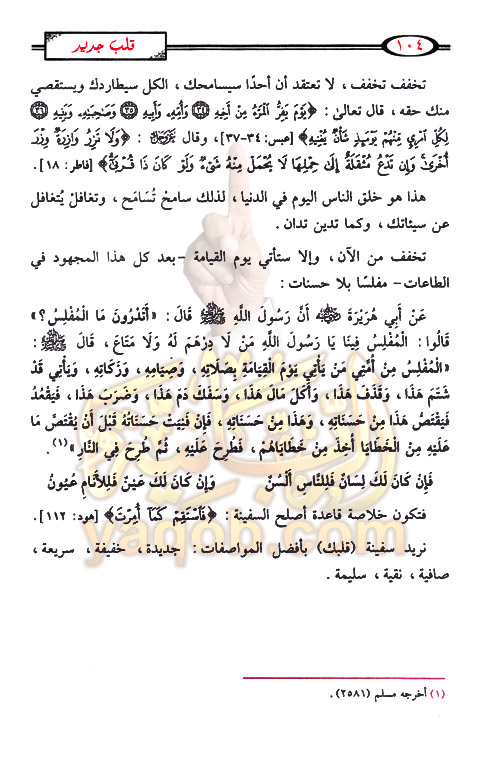 ١٠٤
قلب جديد
تخفف تخفف ، لا تعتقد أن أحدًا سيسامحك ، الكل سيطاردك ويستقصي
منك حقه ، قال تعالىٰ : ﴿يَوْمَ يَفِرُّ ٱلْمَرْءُ مِنْ أَخِيهِ ٣٤ وَأُمِّهِۦ وَأَبِيهِ ٣٥ وَصَٰحِبَتِهِۦ وَبَنِيهِ ٣٦
لِكُلِّ ٱمْرِئٍ مِّنْهُمْ يَوْمَئِذٍ شَأْنٌ يُغْنِيهِ﴾ [عبس: ٣٤-٣٧]، وقال : ﴿وَلَا تَزِرُ وَازِرَةٌ وِزْرَ
أُخْرَىٰ وَإِن تَدْعُ مُثْقَلَةٌ إِلَىٰ حِمْلِهَا لَا يُحْمَلْ مِنْهُ شَىْءٌ وَلَوْ كَانَ ذَا قُرْبَىٰٓ﴾ [فاطر: ١٨].
هذا هو خلق الناس اليوم في الدنيا ، لذلك سامحْ تُسَامَح ، وتغافلْ يُتغافل
عن سيئاتك ، وكما تدين تدان .
تخفف من الآن ، وإلا ستأتي يوم القيامة -بعد كل هذا المجهود في
الطاعات- مفلسًا بلا حسنات :
عَنْ أَبِي هُرَيْرَةَ رَضِيَ اللَّهُ عَنْهُ أَنَّ رَسُولَ اللَّهِ ﷺ قَالَ: «أَتَدْرُونَ مَا الْمُفْلِسُ؟»
قَالُوا: الْمُفْلِسُ فِينَا يَا رَسُولَ اللَّهِ مَنْ لَا دِرْهَمَ لَهُ وَلَا مَتَاعَ ، قَالَ ﷺ :
«الْمُفْلِسُ مِنْ أُمَّتِي مَنْ يَأْتِي يَوْمَ الْقِيَامَةِ بِصَلَاتِهِ ، وَصِيَامِهِ ، وَزَكَاتِهِ ، وَيَأْتِي قَدْ
شَتَمَ هَذَا ، وَقَذَفَ هَذَا ، وَأَكَلَ مَالَ هَذَا ، وَسَفَكَ دَمَ هَذَا ، وَضَرَبَ هَذَا ، فَيَقْعُدُ
فَيَقْتَصُّ هَذَا مِنْ حَسَنَاتِهِ ، وَهَذَا مِنْ حَسَنَاتِهِ ، فَإِنْ فَنِيَتْ حَسَنَاتُهُ قَبْلَ أَنْ يُقْتَصَّ مَا
عَلَيْهِ مِنْ الْخَطَايَا أُخِذَ مِنْ خَطَايَاهُمْ ، فَطُرِحَ عَلَيْهِ ، ثُمَّ طُرِحَ فِي النَّارِ»(١).
فَإِنْ كَانَ لَكَ لِسَانٌ فَلِلنَّاسِ أَلْسُنٌ وَإِنْ كَانَ لَكَ عَيْنٌ فَلِلأَنَامِ عُيُونُ
فتكون خلاصة قاعدة أصلح السفينة : ﴿فَٱسْتَقِمْ كَمَآ أُمِرْتَ﴾ [هود: ١١٢].
نريد سفينة (قلبك) بأفضل المواصفات : جديدة ، خفيفة ، سريعة ،
صافية ، نقية ، سليمة .
(١) أخرجه مسلم (٢٥٨١) .
yaqob.com